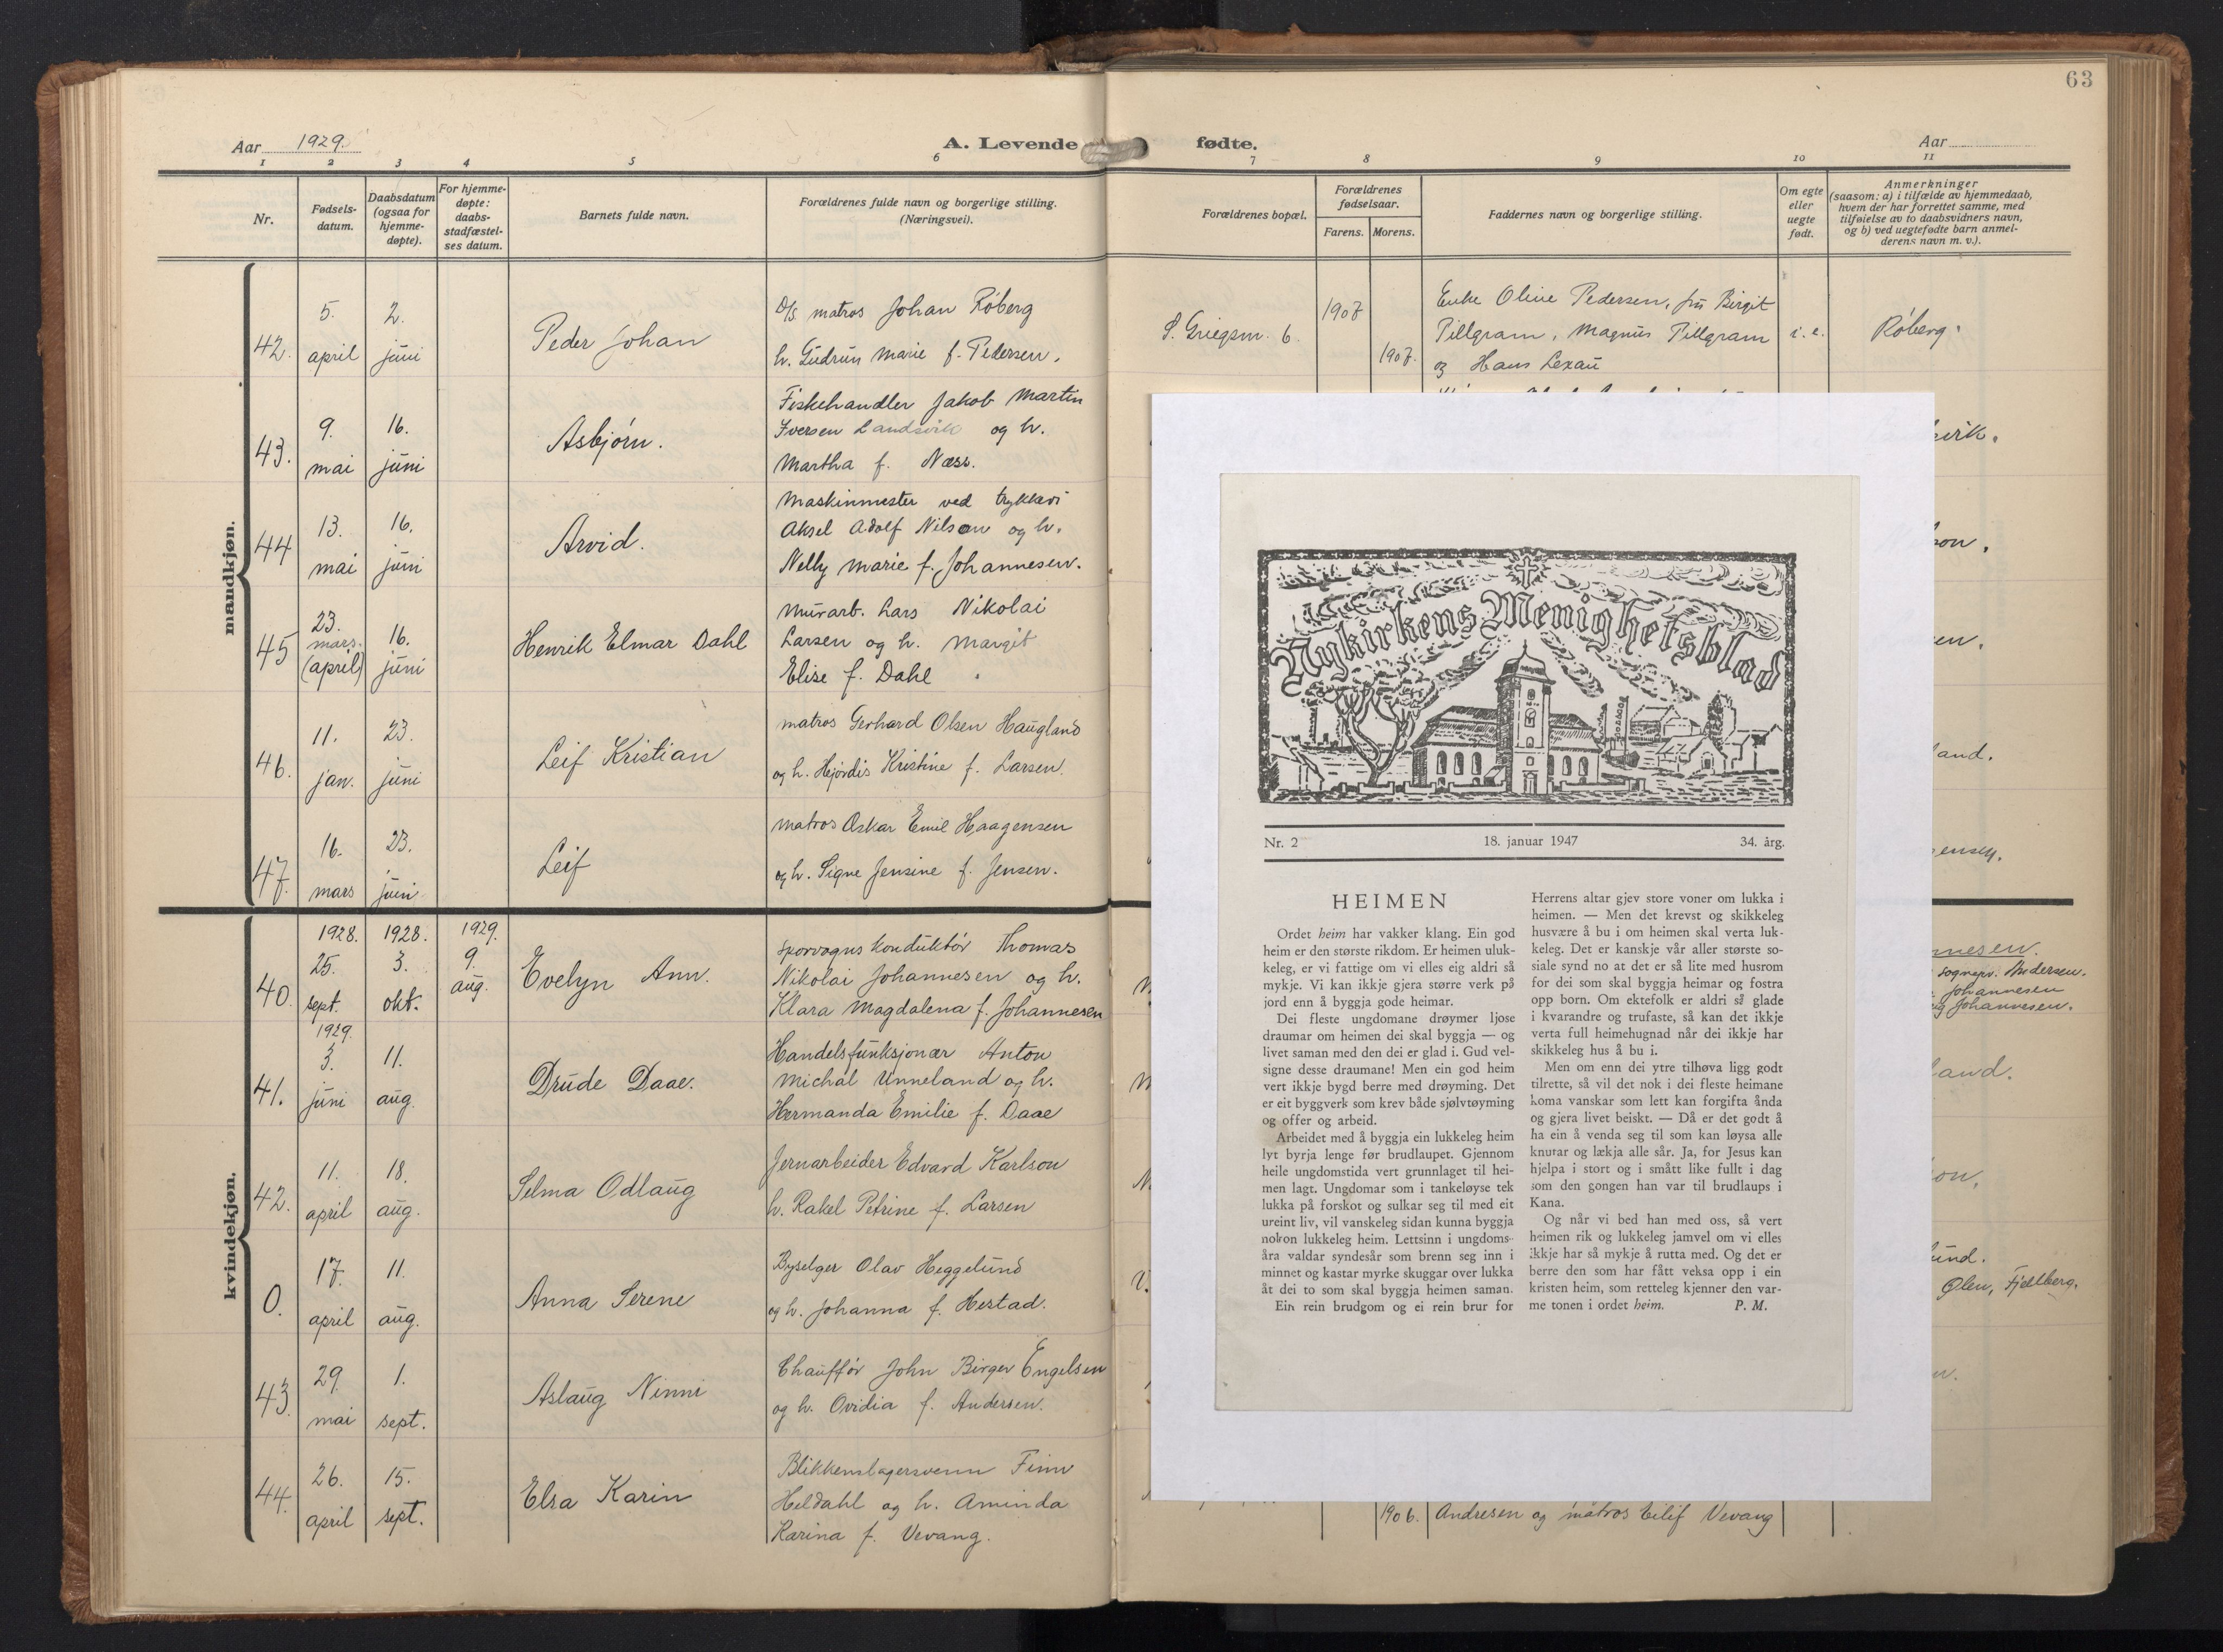 63
Aar 1929.
A. Levende fødte.
Aar
1 2 3 4 5 6 7 8 9 10 11
Nr.
Fødsels-
datum.
Daabsdatum
(ogsaa for
hjemme-
døpte).
For hjemme-
døpte:
daabs-
stadfæstel-
ses datum.
Barnets fulde navn.
Forældrenes fulde navn og borgerlige stilling.
(Næringsvei).
Forældrenes bopæl.
Forældrenes
fødselsaar.
Farens. Morens.
Faddernes navn og borgerlige stilling.
Om egte
eller
uegte
født.
Anmerkninger
(saasom: a) i tilfælde av hjemmedaab,
hvem der har forrettet samme, med
tilføielse av to daabsvidners navn,
og b) ved uegtefødte barn anmel-
derens navn m. v.).
mandkjøn.
42. 5. april 2. juni Peder Johan
D/S matros Johan Røberg
h. Gudrun Marie f. Pedersen.
S. Griegsm. 6.
1907
1907.
Enke Oline Pedersen, fru Birgit
Pillgram, Magnus Pillgram
og Hans Lexau
i. e.
Røberg.
43. 9. mai 16. juni Asbjørn.
Fiskehandler Jakob Martin
Iversen Landsvik og h.
Martha f. Næss.
vik.
44 13. mai 16. juni Arvid.
Maskinmester ved trykkeri
Aksel Adolf Nilson og h.
Nelly Marie f. Johannesen.
son.
45 23. mars. (april) 16. juni Henrik Elmar Dahl
Murarb. Lars Nikolai
Larsen og h. Margit
Elise f. Dahl
en.
46. 11. jan. 23. juni Leif Kristian
matros Gerhard Olsen Haugland
og h. Hjørdis Kristine f. Larsen.
land.
47. 16. mars 23. juni Leif
matros Oskar Emil Haagensen
og h. Signe Jensine f. Jensen.
ensen.
kvindekjøn.
40. 1928. 25. sept. 1928. 3. okt. 1929. 9. aug. Evelyn Ann.
Sporvognskonduktør Thomas
Nikolai Johannesen og h.
Klara Magdalena f. Johannesen
nnesen.
sognepr. Andersen.
Johannesen
Johannesen.
41. 1929. 3. juni 11. aug. Drude Daae.
Handelsfunksjonær Anton
Michal Unneland og h.
Hermanda Emilie f. Daae
land.
42. 11. april 18. aug. Selma Odlaug
Jernarbeider Edvard Karlson
h. Rakel Petrine f. Larsen
on.
0. 17. april 11. aug. Anna Serene
Byselger Olav Heggelund
og h. Johanna f. Hestad.
und.
Ølen, Fjellberg.
43. 29. mai 1. sept. Aslaug Ninni
Chauffør John Birger Engelsen
og h. Ovidia f. Andersen.
44. 26. april 15. sept. Elsa Karin
Blikkenslagersvenn Finn
Heldahl og h. Aminda
Karina f. Vevang.
1906. Andresen og matros Eilif Vevang
Nykirkens Menighetsblad
Nr. 2 18. januar 1947 34. årg.
HEIMEN
Ordet heim har vakker klang. Ein god
heim er den største rikdom. Er heimen uluk-
keleg, er vi fattige om vi elles eig aldri så
mykje. Vi kan ikkje gjera større verk på
jord enn å byggja gode heimar.
Dei fleste ungdomane drøymer ljose
draumar om heimen dei skal byggja — og
livet saman med den dei er glad i. Gud vel-
signe desse draumane! Men ein god heim
vert ikkje bygd berre med drøyming. Det
er eit byggverk som krev både sjølvtøyming
og offer og arbeid.
Arbeidet med å byggja ein lukkeleg heim
lyt byrja lenge før brudlaupet. Gjennom
heile ungdomstida vert grunnlaget til hei-
men lagt. Ungdomar som i tankeløyse tek
lukka på forskot og sulkar seg til med eit
ureint liv, vil vanskeleg sidan kunna byggja
nokon lukkeleg heim. Lettsinn i ungdoms-
åra valdar syndesår som brenn seg inn i
minnet og kastar myrke skuggar over lukka
åt dei to som skal byggja heimen saman.
Ein rein brudgom og ei rein brur for
Herrens altar gjev store voner om lukka i
heimen. — Men det krevst og skikkeleg
husvære å bu i om heimen skal verta luk-
keleg. Det er kanskje vår aller største so-
siale synd no at det er så lite med husrom
for dei som skal byggja heimar og fostra
opp born. Om ektefolk er aldri så glade
i kvarandre og trufaste, så kan det ikkje
verta full heimehugnad når dei ikkje har
skikkeleg hus å bu i.
Men om enn dei ytre tilhøva ligg godt
tilrette, så vil det nok i dei fleste heimane
koma vanskar som lett kan forgifta ånda
og gjera livet beiskt. — Då er det godt å
ha ein å venda seg til som kan løysa alle
knutar og lækja alle sår. Ja, for Jesus kan
hjelpa i stort og i smått like fullt i dag
som den gongen han var til brudlaups i
Kana.
Og når vi bed han med oss, så vert
heimen rik og lukkeleg jamvel om vi elles
ikkje har så mykje å rutta med. Og det er
berre den som har fått veksa opp i ein
kristen heim, som retteleg kjenner den var-
me tonen i ordet heim. P. M.